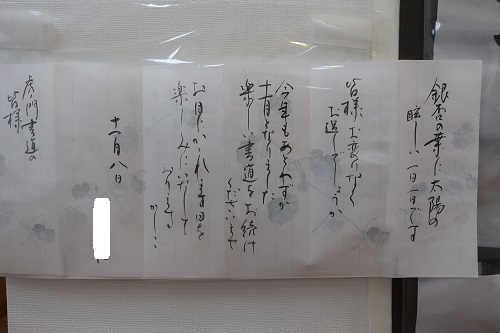 銀杏の葉に太陽の
眩しい一日一日です
皆様お変りなく
お過しでしょうか
今年もあとわずか
十一月となりました
楽しい書道をお続け
くださいませ
お目にかかれます日を
楽しみにいたして
おります
かしこ
十一月八日
虎ノ門書道の
皆様